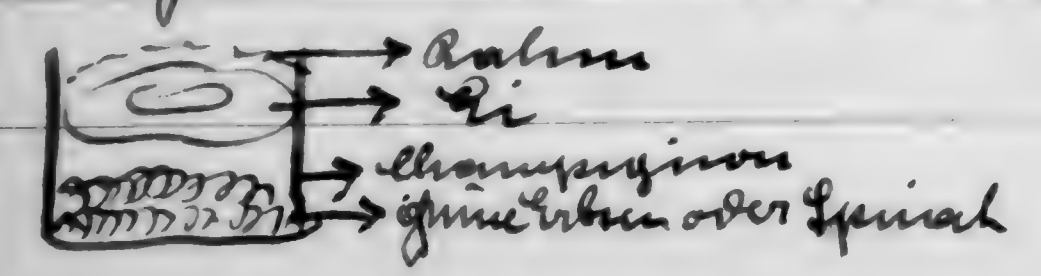 Rahm
Ei
Champignon
grüne Erbsen oder Spinat